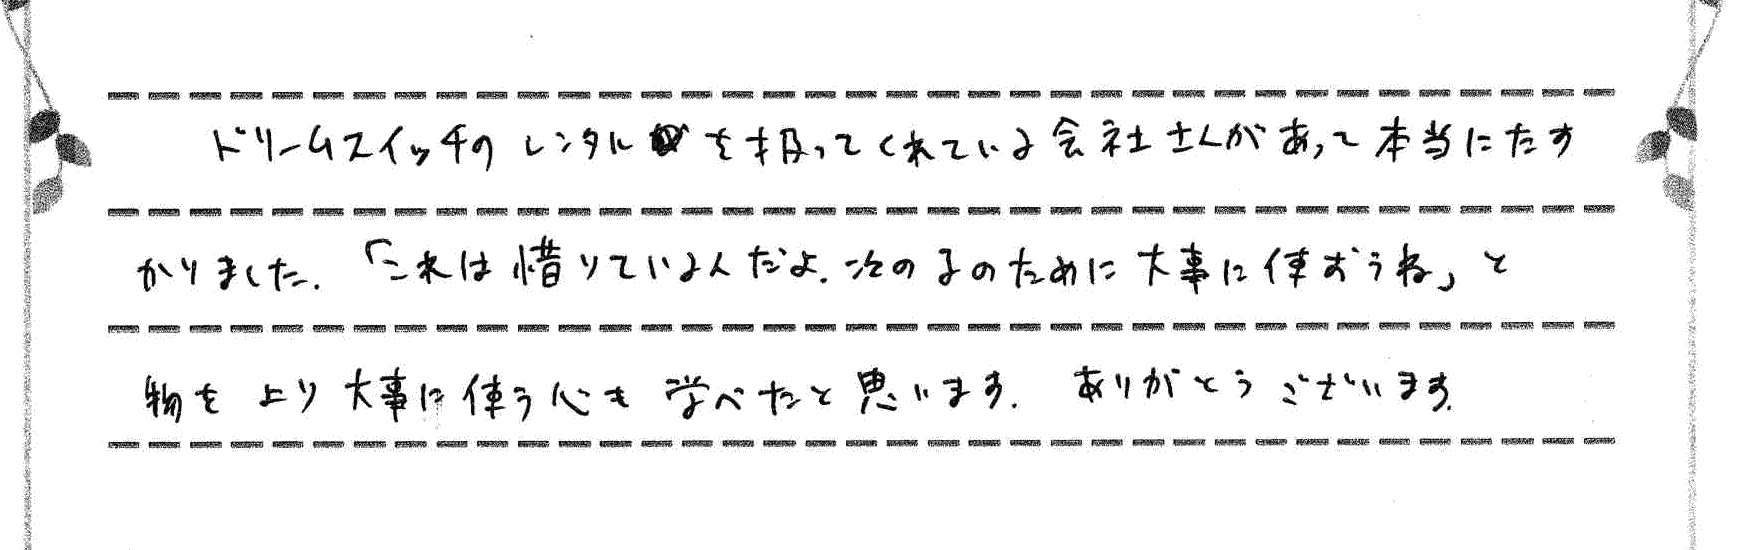 ドリームスイッチのレンタルを扱ってくれている会社さんがあって本当にたす
かりました。「これは借りているんだよ。次の子のために大事に使おうね」と
物をより大事に使う心も学べたと思います。ありがとうございます。